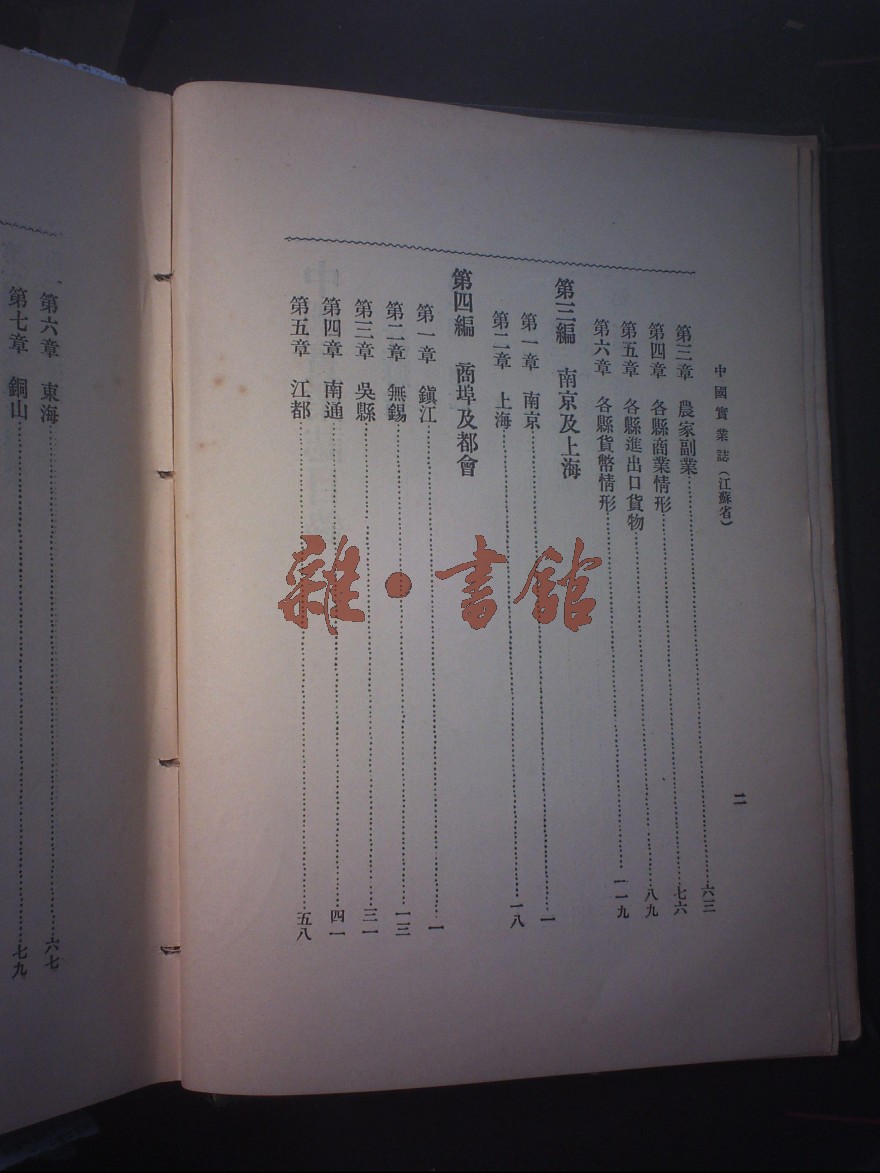 中國實業誌（江蘇省）
二
第三章　農家副業……六三
第四章　各縣商業情形……七六
第五章　各縣進出口貨物……八九
第六章　各縣貨幣情形……一一九
第三編　南京及上海
第一章　南京……一
第二章　上海……一八
第四編　商埠及都會
第一章　鎮江……一
第二章　無錫……一三
第三章　吳縣……三一
第四章　南通……四一
第五章　江都……五八
第六章　東海……六七
第七章　銅山……七九
雜·書館